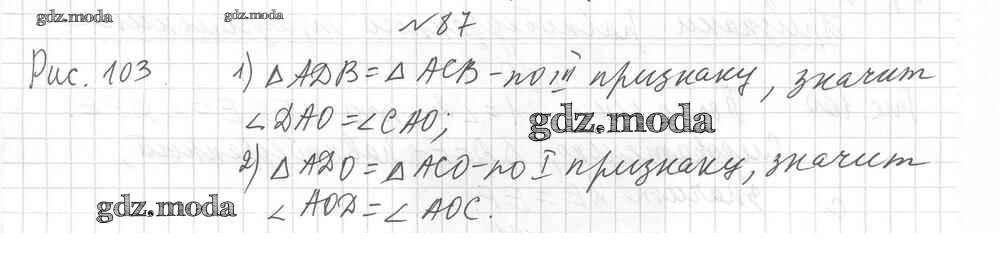 gdz.moda
gdz.moda
№ 87
Рис. 103 1) △ ADB = △ ACB - по III признаку, значит
∠ DAO = ∠ CAO;
gdz.moda
2) △ ADO = △ ACO - по I признаку, значит
gdz.moda
∠ AOD = ∠ AOC.